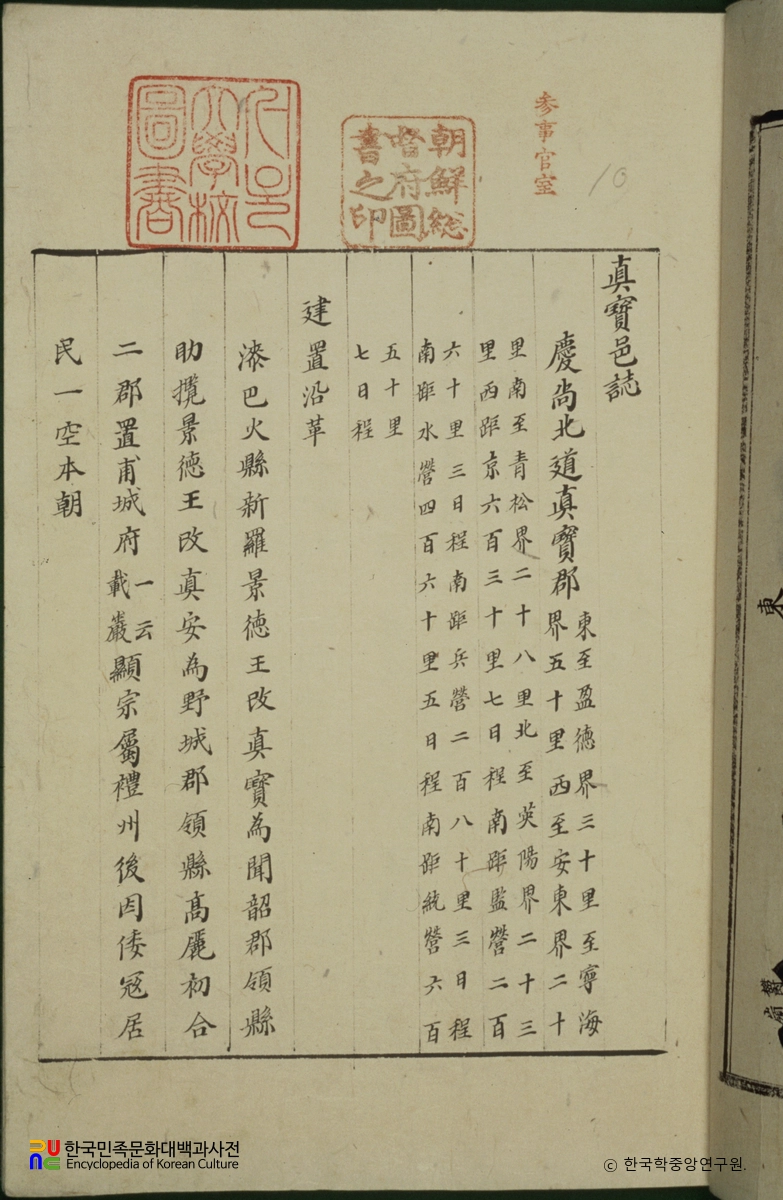 参事官室
10
朝鮮總
督府圖
書之印
서울
大學校
圖書
真寶邑誌
慶尚北道真寶郡
東至盈德界三十里至寧海
界五十里西至安東界二十
里南至青松界二十八里北至英陽界二十三
里西距京六百三十里七日程南距監營二百
六十里三日程南距兵營二百八十里三日程
南距水營四百六十里五日程南距統營六百
五十里
七日程
建置沿革
漆巴火縣新羅景德王改真寶為聞韶郡領縣
助攬景德王改真安為野城郡領縣高麗初合
二郡置甫城府一云載巖顯宗屬禮州後因倭冦居
民一空本朝
東
한국민족문화대백과사전
Encyclopedia of Korean Culture
ⓒ 한국학중앙연구원.